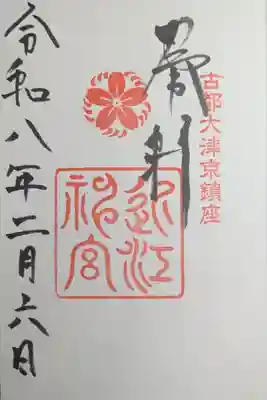 古都大津京鎮座
奉拝
近江
神宮
令和八年二月六日